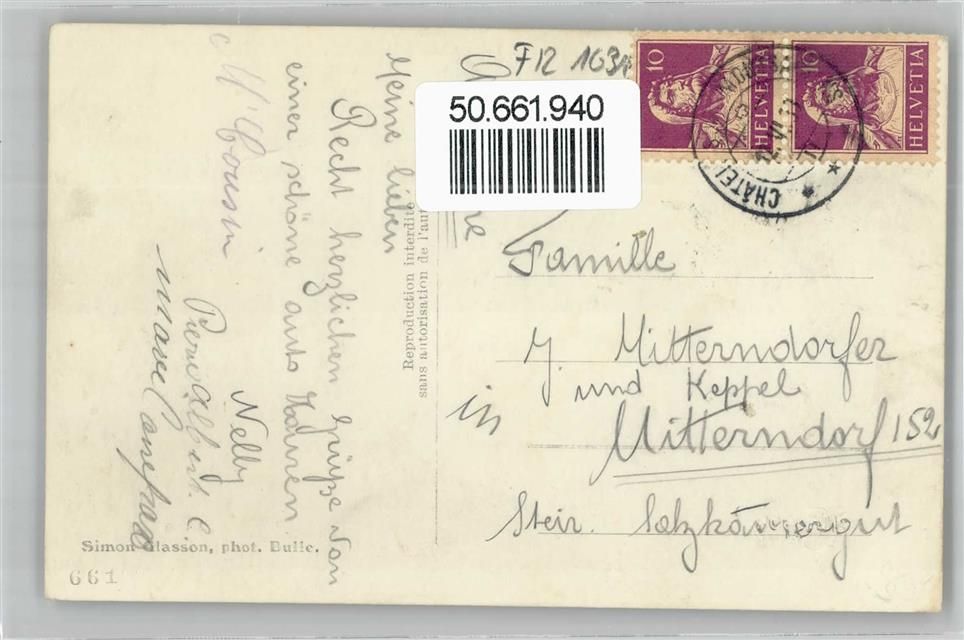 FR 1631
50.661.940
10 HELVETIA
10 HELVETIA
CHÂTEL
Meine lieben
Recht herzlichen Grüße von
einer schöne auto Touren
Nelly
M. Cousin
Pierre Albert. C.
Marcel
Reproduction interdite
sans autorisation de l'aut
Simon Glasson, phot. Bulle.
661
Familie
J. Mitterndorfer
und Keppel
in Mitterndorf 152
Steir. Salzkammergut